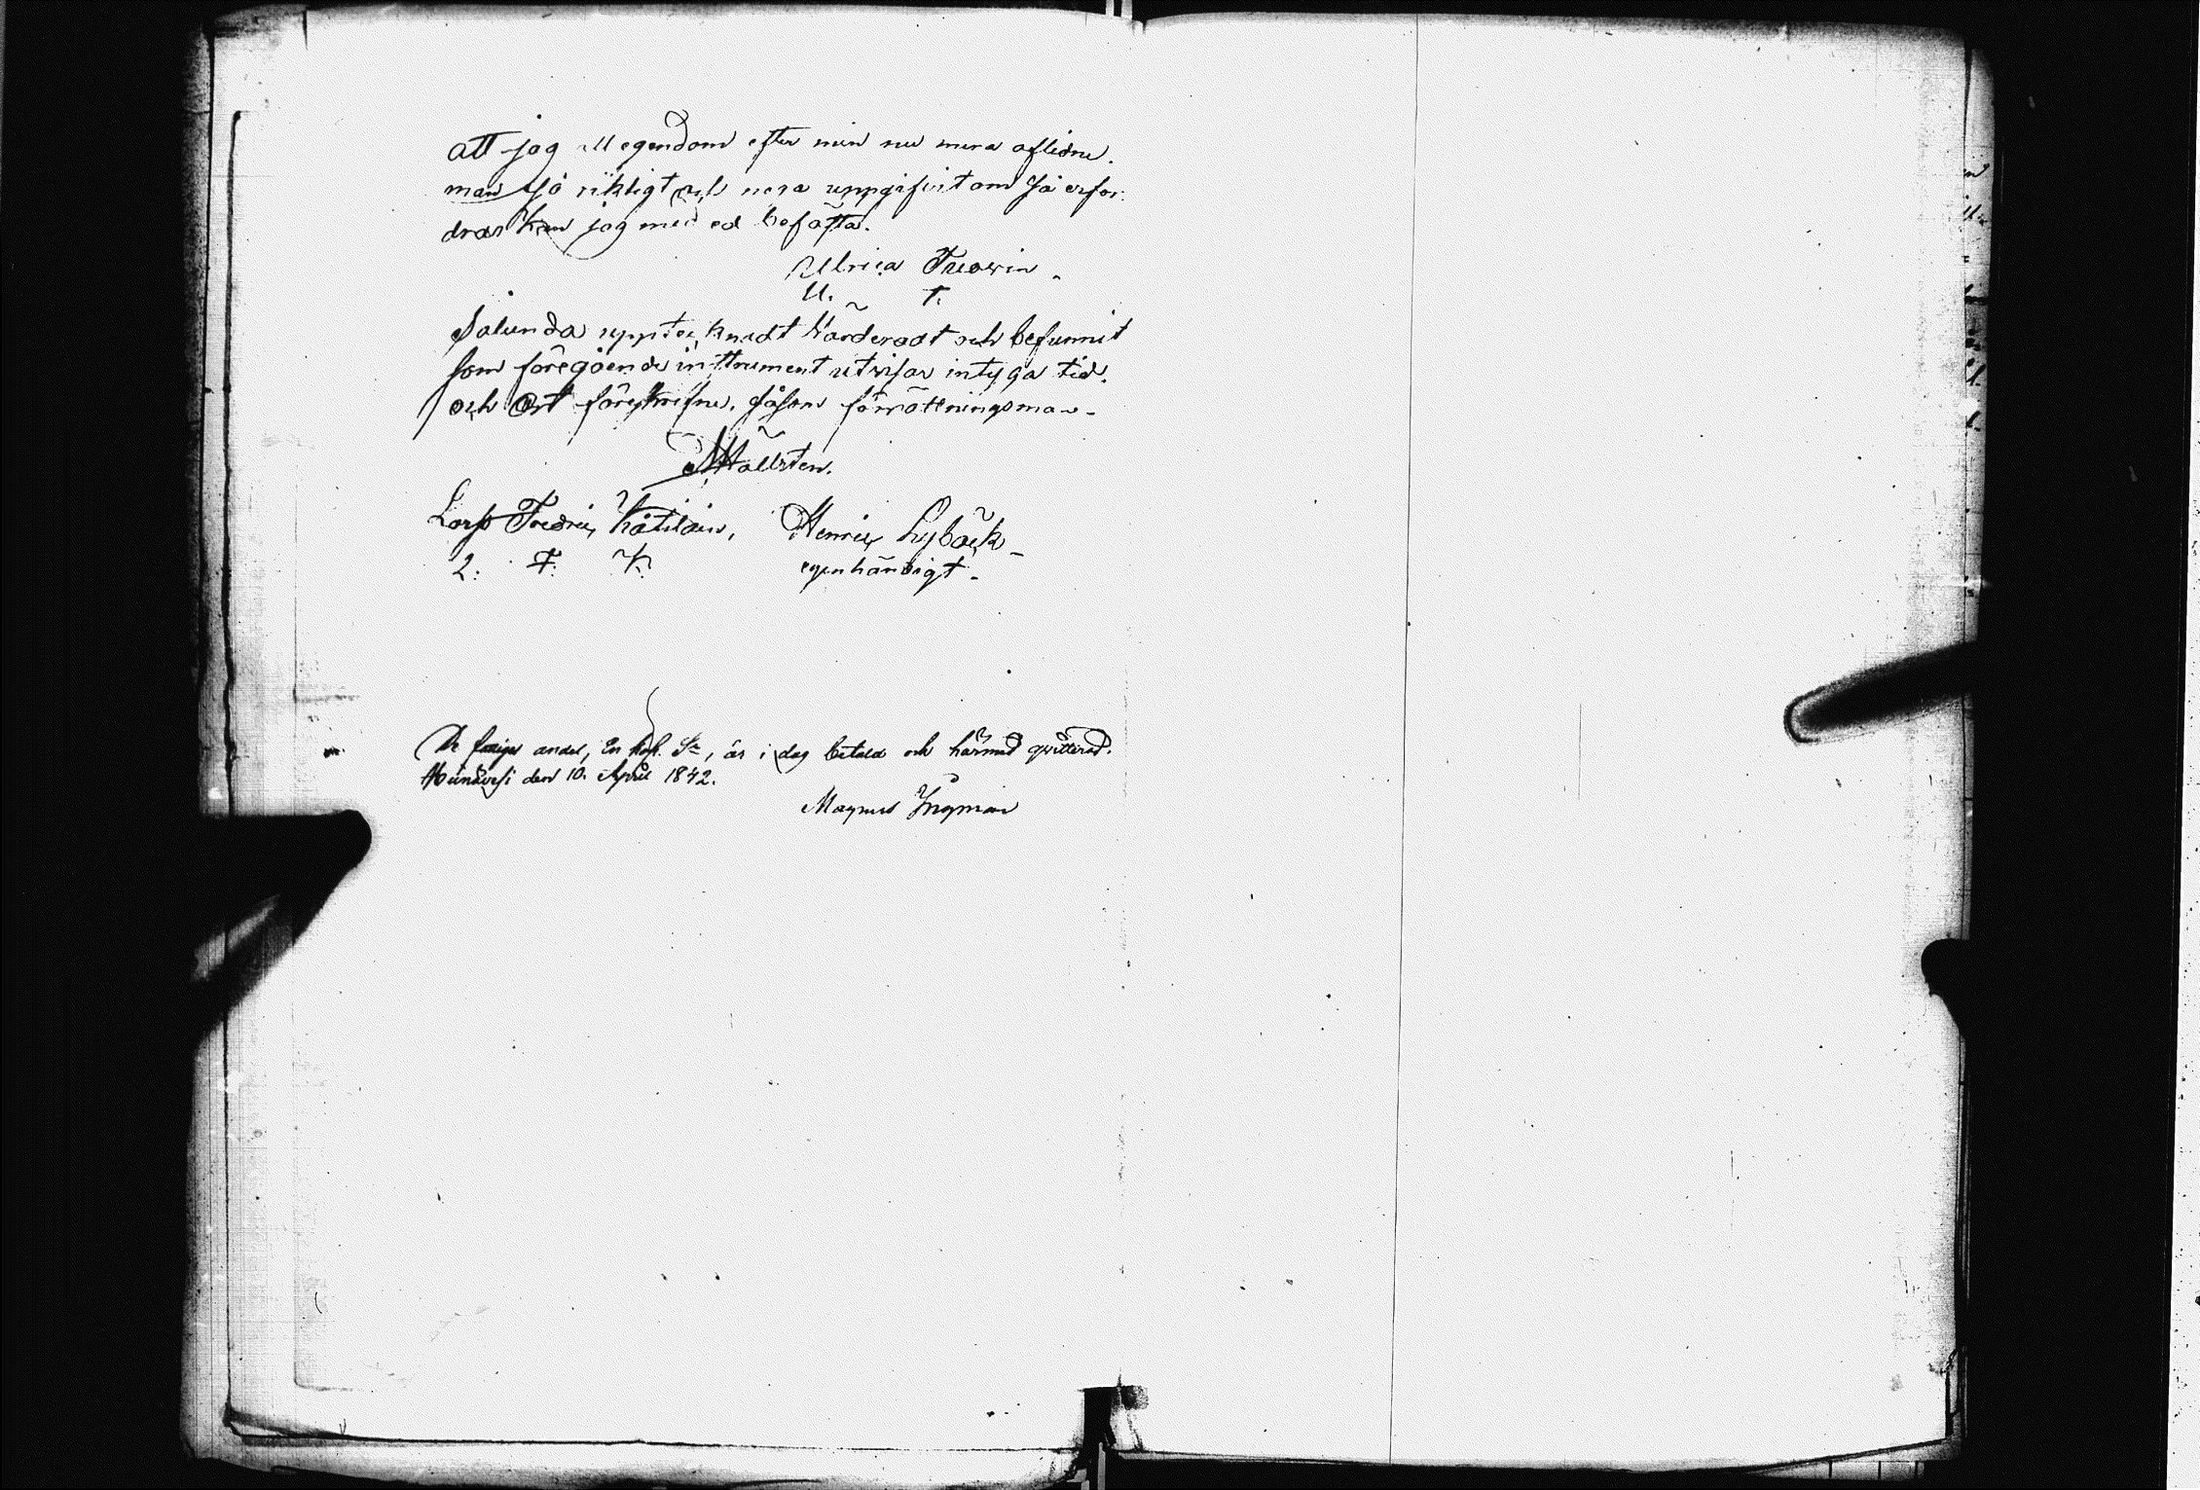 att jag all egendom efter min nu mera aflidne
man så riktigt och nera uppgifvit om så erfor-
dras kan jag med ed befästa.
Ulrica
U. T.
Sålunda upptecknadt värderadt och befunnit
som föregående instrument utvisar intyga tid
och Ort föreskrifne. såsom förrättningsman
Hällsten.
Lars Fredric
L. F. K.
Henric Lybäck
egenhändigt
De fattiges andel, En kop. Sr, är i dag betald och härmed qvitterad.
den 10. April 1842.
Magnus Ingman